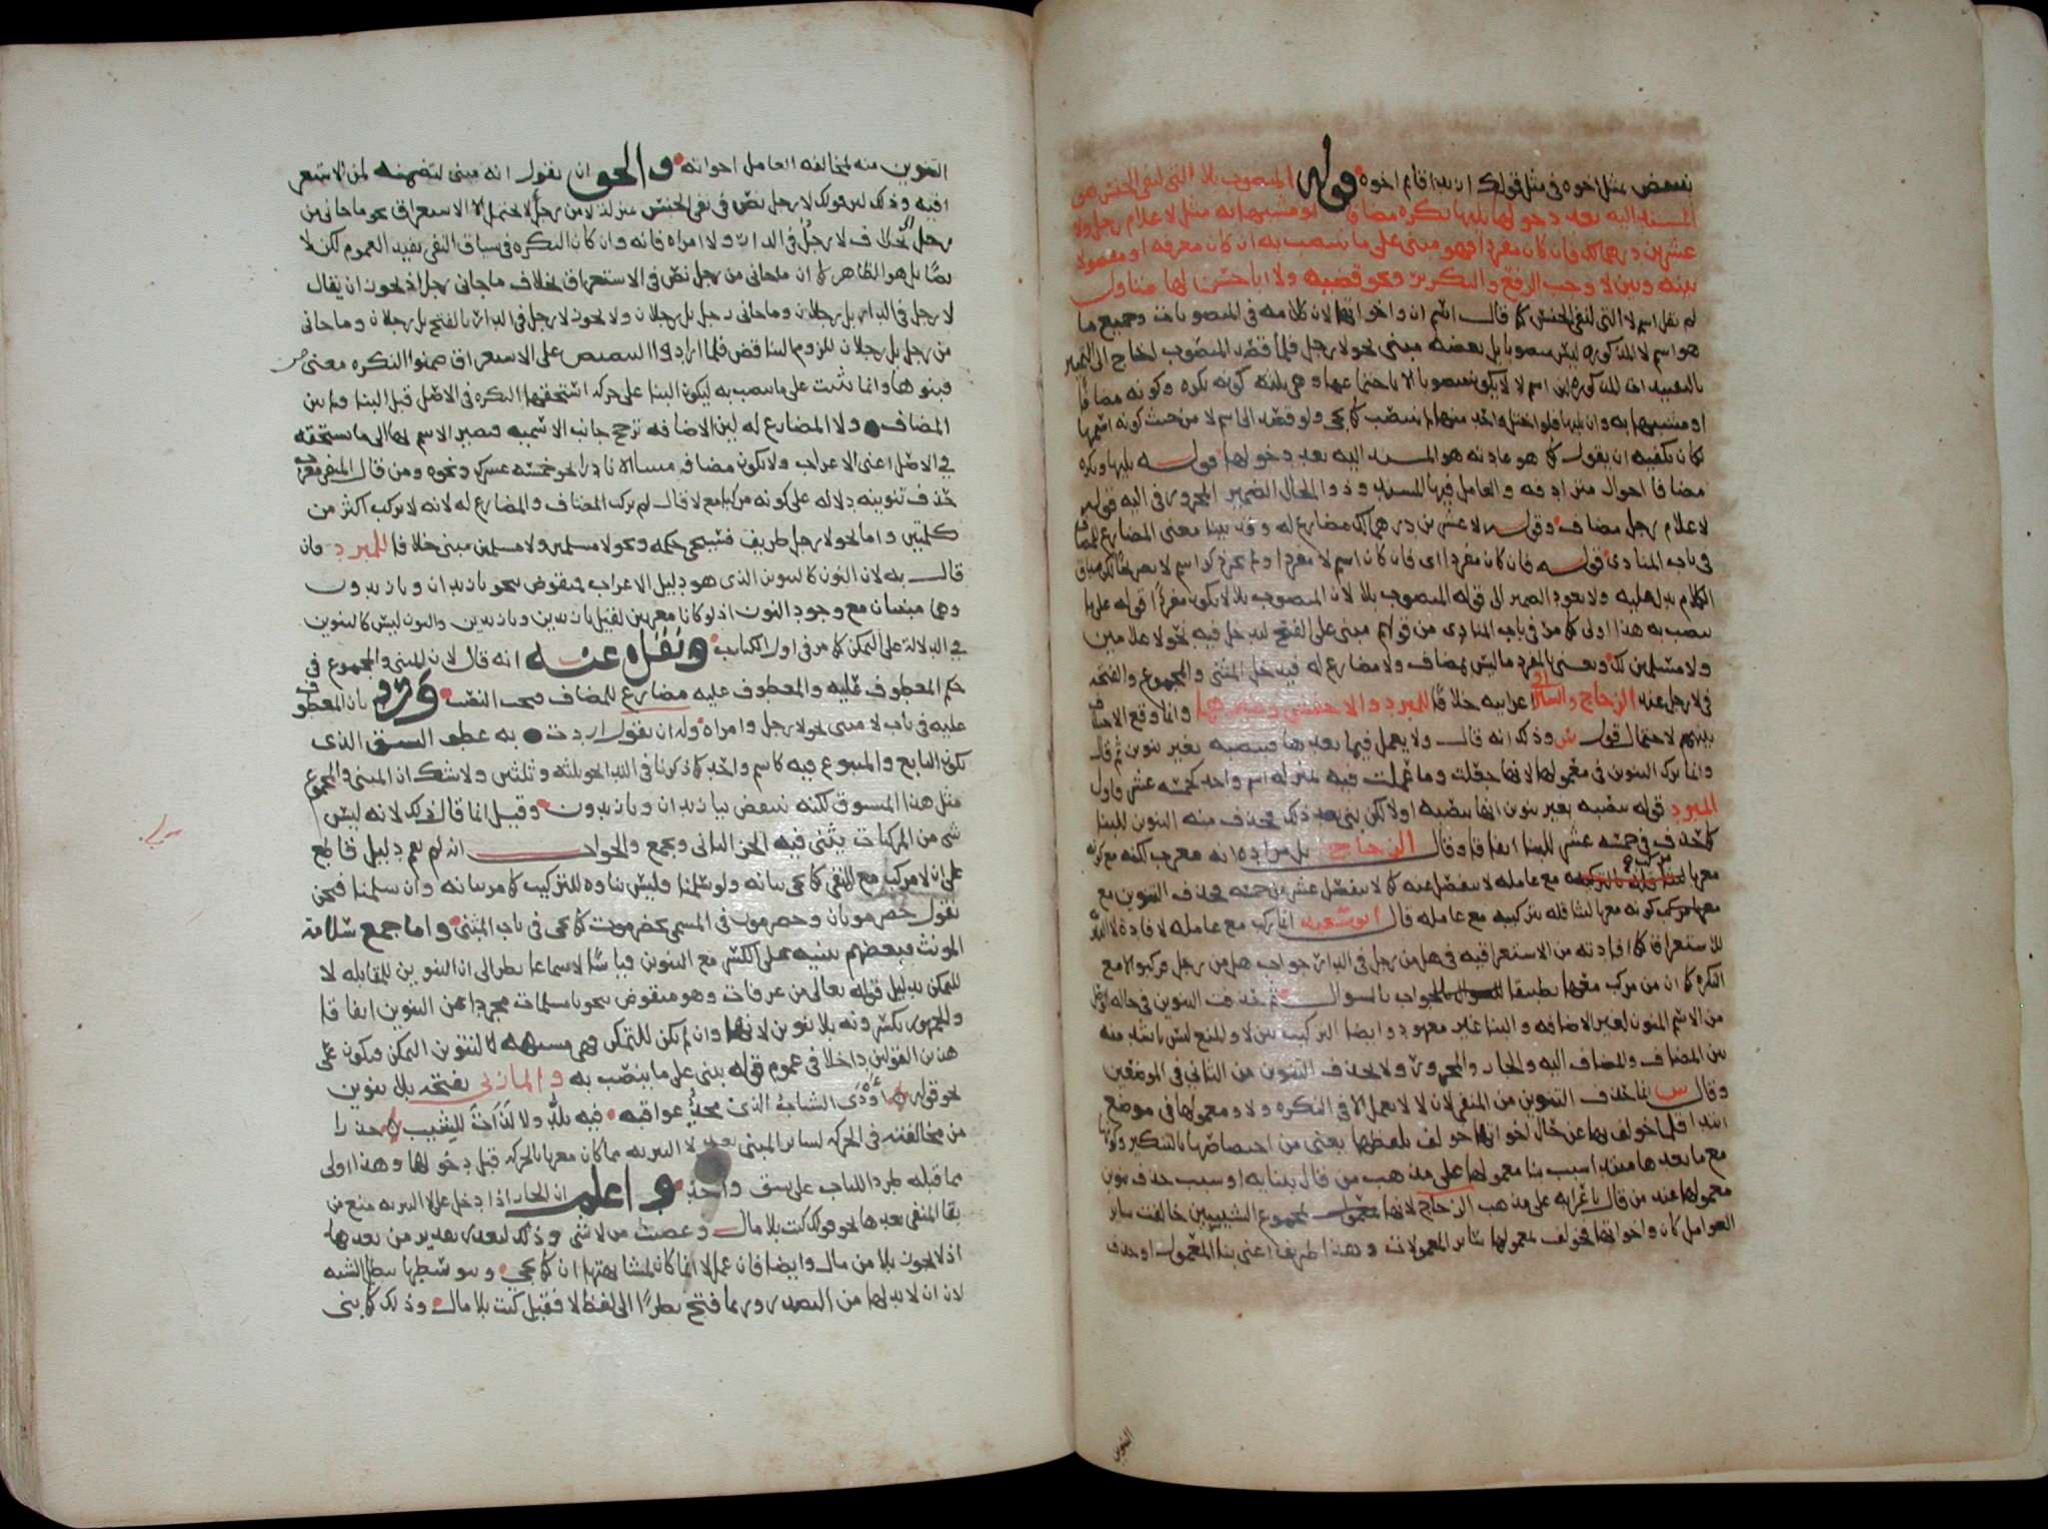 ينتقض بمثل اخوه في مثل قولك ان زيدا قايم اخوه قوله المنصوب بلا التي لنفي الجنس هو
المسند اليه بعد دخولها يليها نكره مضافا او مشبها به مثل لا غلام رجل ولا
عشرين درهما لك فان كان مفردا فهو مبني على ما ينصب به وان كان معرفه او مفصولا
بينه وبين لا وجب الرفع والتكرير ونحو قضيه ولا ابا حسن لها متاول
لم يقل اسم لا التي لنفي الجنس كما قال اسم ان واخواتها لان كلامه في المنصوبات وجميع ما
هو اسم لا المذكوره ليس منصوبا بل بعضه مبني نحو لا رجل فلما قصد المنصوب احتاج الى التمييز
بالتقييد اذ المذكوره اسم لا لا يكون منصوبا الا باجتماعها وهي ثلثه كونه نكره وكونه مضافا
او مشبها به وان يليها فلو اختل واحد منها لم ينتصب كما يجي ولو قصد الى اسم لا من حيث كونه اسمها
لكان يكفيه ان يقول كما هو عادته هو المسند اليه بعد دخولها قوله يليها ونكره
مضافا احوال مترادفه والعامل فيها المسند وذو الحال الضمير المجرور في اليه قوله
لا غلام رجل مضاف وقوله لا عشرين درهما لك مضارع له وقد بينا معنى المضارع للمضاف
في باب المنادى قوله فان كان مفردا اي فان كان اسم لا مفردا ولم يجر ذكر اسم لا صريحا لكن سياق
الكلام يدل عليه ولا يعود الضمير الى قوله المنصوب بلا لان المنصوب بلا لا يكون مفردا قوله على ما
ينصب به هذا اولى كما مر في باب المنادى من قولهم مبني على الفتح ليدخل فيه نحو لا غلامين
ولا مسلمين لك ويعني بالمفرد ما ليس بمضاف ولا مضارع له فيدخل المثنى والمجموع والفتحه
في لا رجل عند الزجاج والسيرافي اعرابيه خلافا للمبرد والاخفش وغيرهما وانما وقع الاختلاف
بينهم لاحتمال قول س وذلك انه قال ولا يعمل فيما بعدها فينصبه بغير تنوين ثم قال
وانما ترك التنوين في معمولها لانها جعلت وما عملت فيه بمنزله اسم واحد كخمسه عشر فاول
المبرد قوله تنصبه بغير تنوين انها تنصبه اولا لكن بني بعد ذلك فحذف منه التنوين للبنا
كما حذف في خمسه عشر للبنا اتفاقا وقال الزجاج بل مراده انه معرب لكنه مع كونه
معربا مركب مع عامله لا ينفصل عنه كما لا ينفصل عشر من خمسه فحذف التنوين مع
كونه معربا لتثاقله بتركيبه مع عامله قال ابو سعيد انما ركب مع عامله لافاده لا التبريه
للاستغراق كما افادته من الاستغراقيه في هل من رجل في الدار جواب هل من رجل فركبوا لا مع
النكره كما ان من مركب معها تطبيقا للجواب بالسوال ثم حذفت التنوين في حاله الوصل
من الاسم المنون لغير الاضافه والبنا غير معهود وايضا التركيب بين لا والمنفي ليس باشد منه
بين المضاف والمضاف اليه والجار والمجرور ولا يحذف التنوين من الثاني في الموضعين
وقال س انما حذف التنوين من المنفي لان لا لا يعمل الا في النكره ولا ومعمولها في موضع
ابتدا فلما خولف بها عن حال اخواتها خولف بلفظها يعني من اختصاصها بالتنكير وكونها
مع ما بعدها مبتدا سبب بنا معمولها على مذهب من قال ببنايه او سبب حذف تنوين
معمولها عند من قال باعرابه على مذهب الزجاج لانها لمجموع الشيين خالفت ساير
العوامل كان واخواتها فخولف بمعمولها ساير المعمولات وهذا طريف اعني بنا المعمول او حذف
التنوين
التنوين منه لمخالفه العامل اخواته والحق ان نقول انه مبني لتضمنه لمن الاستغر
اقيه وذلك لان قولك لا رجل نص في نفي الجنس بمنزله لا من رجل لا يحتمل الا الاستغراق نحو ما جاني من
رجل بخلاف لا رجل في الدار ولا امراه فانه وان كان النكره في سياق النفي يفيد العموم لكن لا
نصا بل هو الظاهر كما ان ما جاني من رجل نص في الاستغراق بخلاف ما جاني رجل اذ يجوز ان يقال
لا رجل في الدار بل رجلان وما جاني رجل بل رجلان ولا يجوز لا رجل في الدار بالفتح بل رجلان وما جاني
من رجل بل رجلان للزوم التناقض فلما ارادوا التنصيص على الاستغراق ضمنوا النكره معنى من
فبنوها وانما بنيت على ما ينصب به ليكون البنا على حركه استحقتها النكره في الاصل قبل البنا ولم يبن
المضاف ولا المضارع له لان الاضافه ترجح جانب الاسميه فيصير الاسم بها الى ما يستحقه
في الاصل اعني الاعراب ولا يكون مضاف مبنيا الا نادرا نحو خمسه عشرك ونحوه ومن قال المنفي معرب
حذف تنوينه دلاله على كونه مركبا مع لا قال لم يركب المضاف والمضارع له لانه لا يركب اكثر من
كلمتين واما نحو لا رجل ظريف فسيجي حكمه ونحو لا مسلمين ولا مسلمين مبني خلافا للمبرد فان
قال به لان النون كالتنوين الذي هو دليل الاعراب فمنقوض بنحو يا زيدان ويا زيدون
وهما مبنيان مع وجود النون اذ لو كانا معربين لقيل يا زيدين ويا زيدين والنون ليس كالتنوين
في الدلاله على التمكن كما مر في اول الكتاب ونقل عنه انه قال لان المثنى والمجموع في
حكم المعطوف عليه والمعطوف عليه مضارع للمضاف فيجب النصب ورد بان المعطوف
عليه في باب لا مبني نحو لا رجل وامراه وله ان يقول اردت به عطف النسق الذي
يكون التابع والمتبوع فيه كاسم واحد كما ذكرنا في الندا نحو يا ثلثه وثلثين ولا شك ان المثنى والمجموع
مثل هذا المنسوق لكنه ينتقض بيا زيدان ويا زيدون وقيل انما قال ذلك لانه ليس
شي من المركبات يثنى فيه الجز الثاني ويجمع والجواب انه لم يقم دليل قاطع
على ان لا مركب مع المنفي كما يجي بيانه ولو سلمنا فليس بناوه للتركيب كما مر بيانه وان سلمنا فنحن
نقول حضرموتان وحضرموتون في المسمى بحضرموت كما يجي في باب المثنى واما جمع سلامه
المونث فبعضهم يبنيه على الكسر مع التنوين قياسا لا سماعا نظرا الى ان التنوين للمقابله لا
للتمكن بدليل قوله تعالى من عرفات وهو منقوض بنحو يا مسلمات مجردا عن التنوين اتفاقا
والجمهور يكسرونه بلا تنوين لانها وان لم تكن للتمكن فهي مشبهه لتنوين التمكن فيكون على
هذين القولين داخلا في عموم قوله يبنى على ما ينصب به والمازني يفتحه بلا تنوين
نحو قوله اودى الشباب الذي مجد عواقبه فيه نلذ ولا لذات للشيب حذرا
من مخالفته في الحركه لساير المبني بعد لا التبريه مما كان معربا بالحركه قبل دخولها وهذا اولى
مما قبله طردا للباب على نسق واحد واعلم ان الجار اذا دخل على لا التبريه منع من
بقا المنفي بعدها نحو قولك كنت بلا مال وغضبت من لا شي وذلك لتعذر تقدير من بعدها
اذ لا يجوز بلا من مال وايضا فان عمل لا انما كان لمشابهتها ان كما يجي وبتوسطها يبطل الشبه
لان ان لا بد لها من التصدر وربما فتح نظرا الى لفظ لا فقيل كنت بلا مال وذلك كما بني